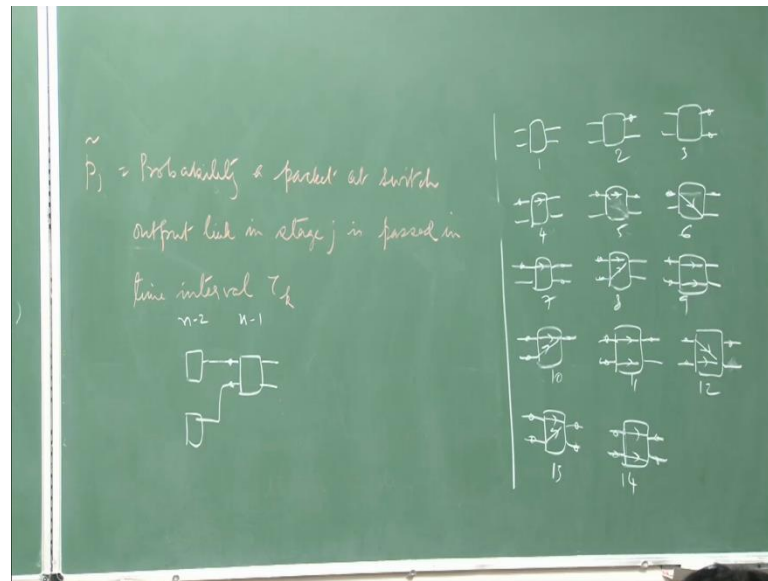 p̃j = Probability a packet at switch
output link in stage j is passed in
time interval τk
n-2 n-1
1 2 3
4 5 6
7 8 9
10 11 12
13 14
)